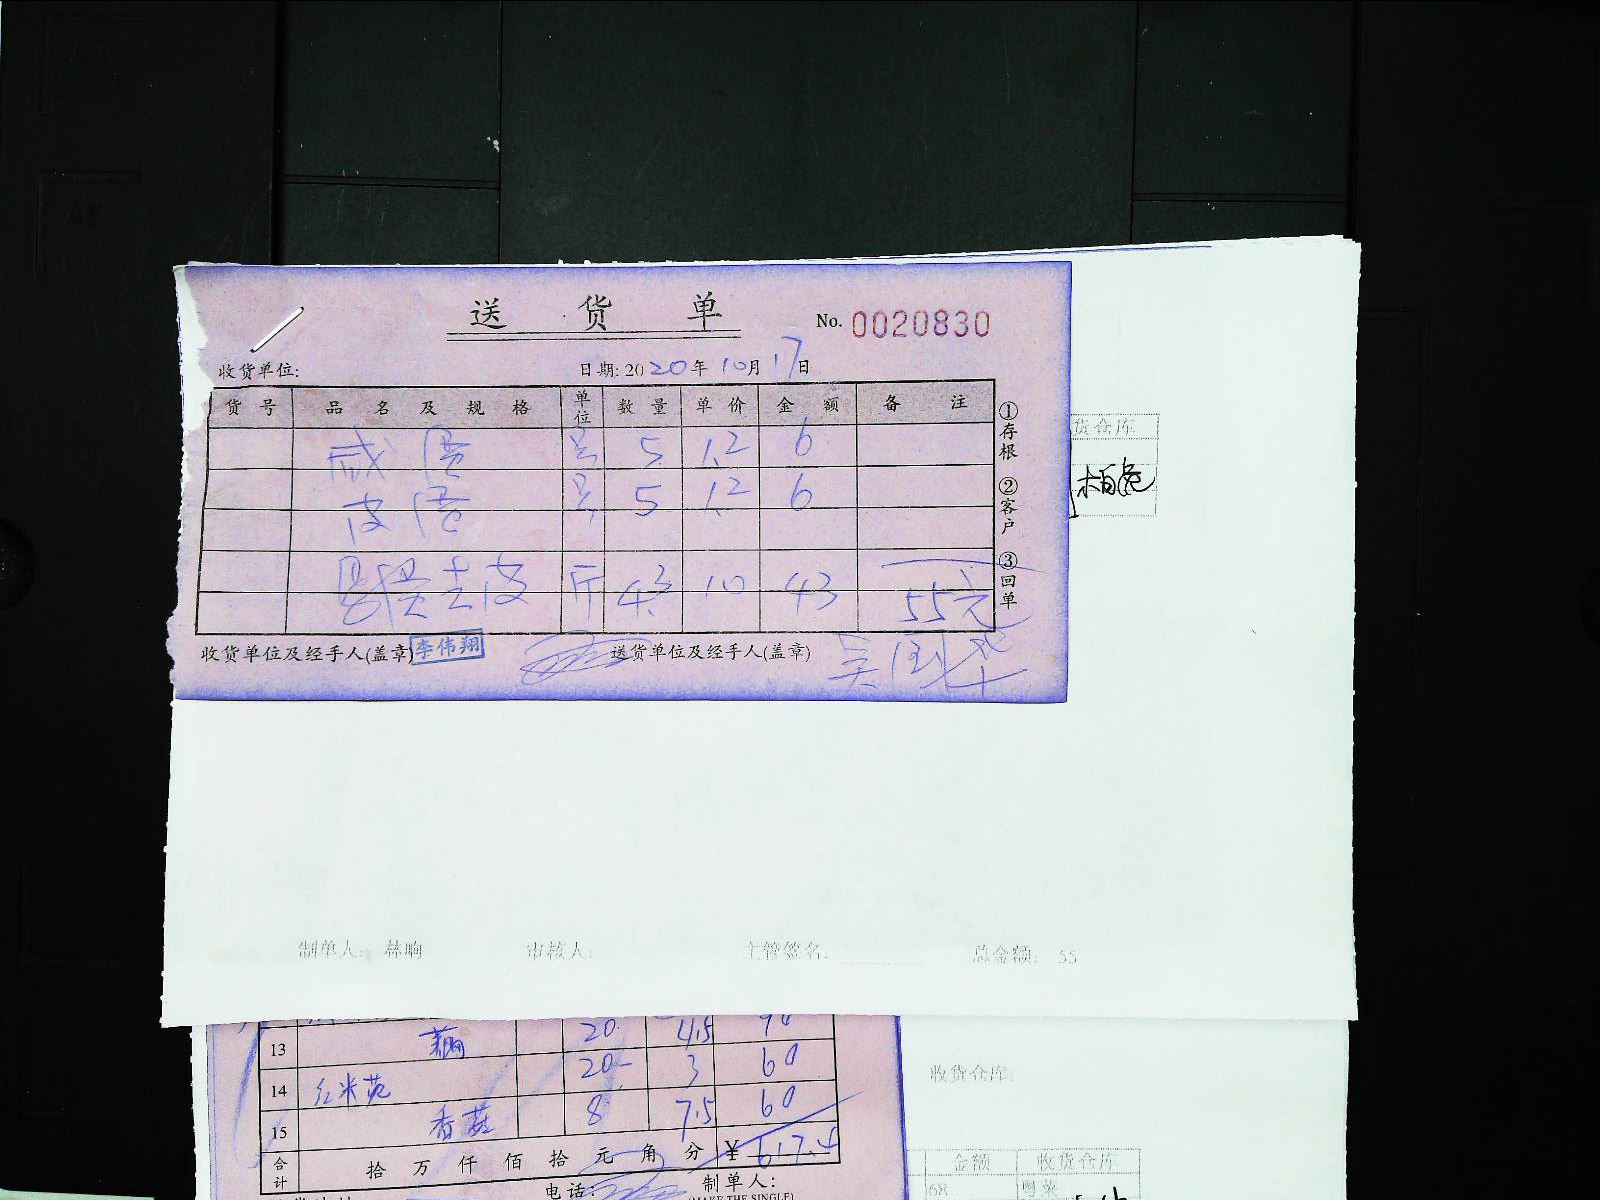 送 货 单
No. 0020830
收货单位:
日期: 2020年 10月 17日
货号 品名及规格 单位 数量 单价 金额 备注
咸蛋 只 5 1.2 6
皮蛋 只 5 1.2 6
去皮 斤 4.3 10 43
55元
①存根 ②客户 ③回单
收货单位及经手人(盖章) 李伟翔 送货单位及经手人(盖章)
货仓库
制单人: 审核人: 主管签名: 总金额: 55
13 藕 20 4.5 90
14 红米苋 20 3 60
15 香菇 8 7.5 60
合计 拾 万 仟 佰 拾 元 角 分 ¥ 617.4
电话: 制单人:
(MAKE THE SINGLE)
收货仓库:
金额 收货仓库
68 粤菜